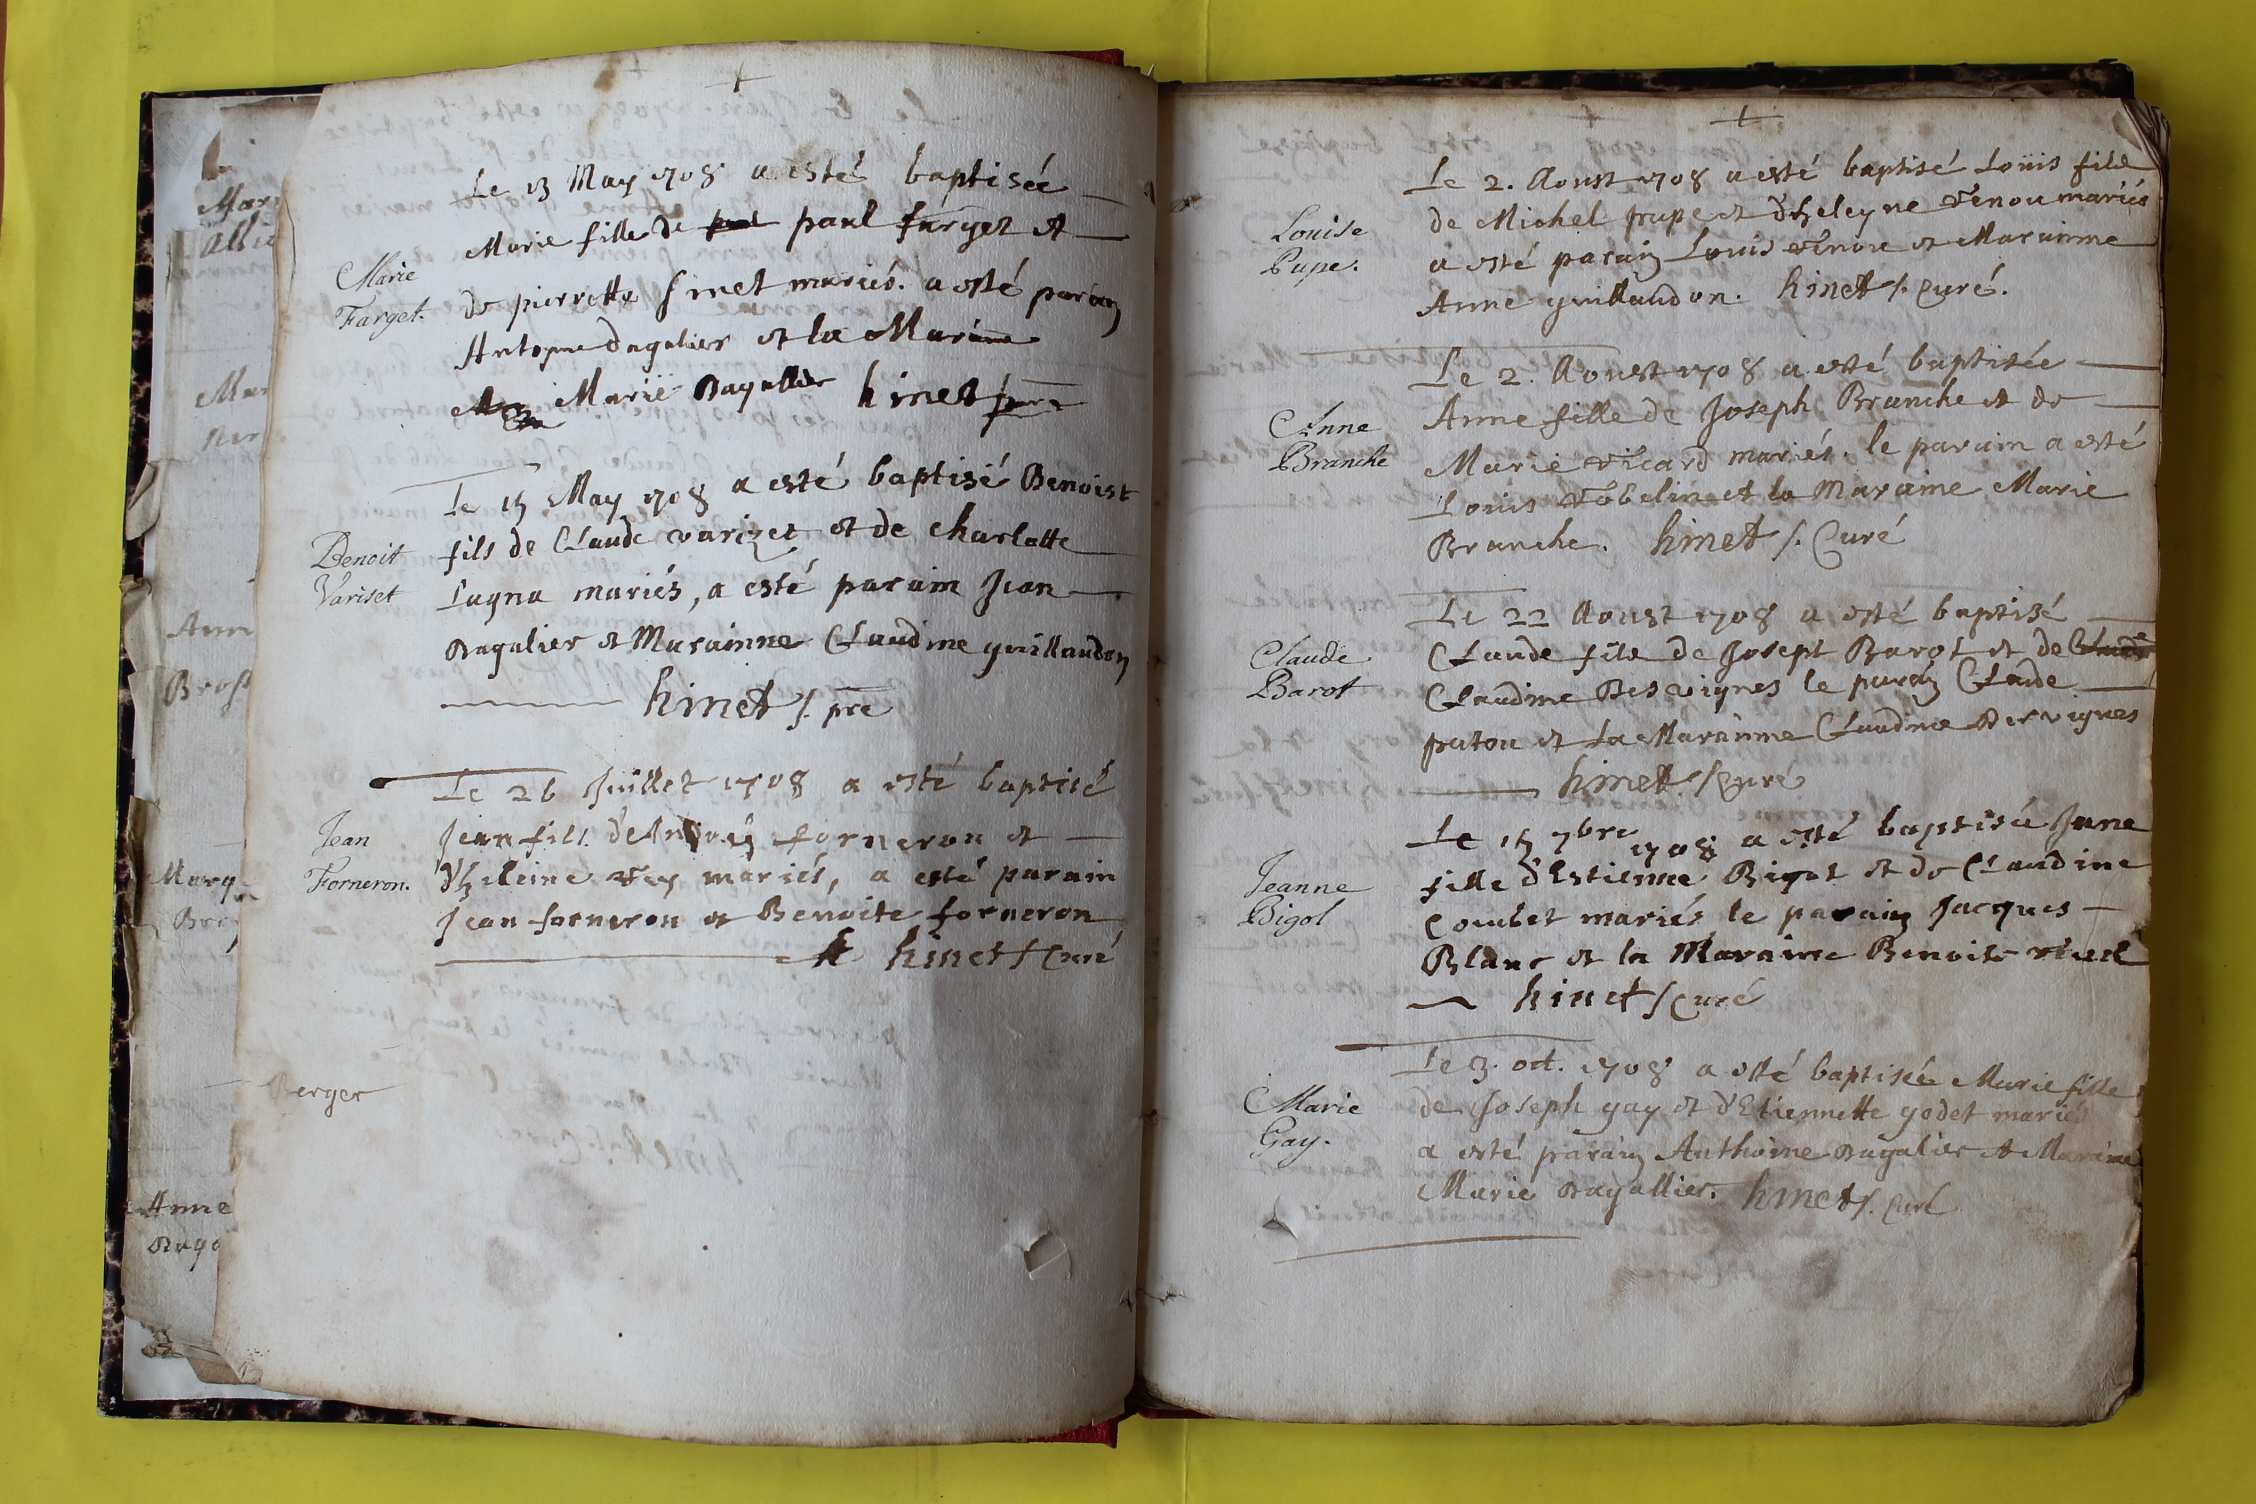 Le 13 May 1708 a esté baptisée
Marie fille de paul farget et
Marie
Farget.
de pierrette sinet mariés. a esté parain
Antoyne dagalier et la Maraine
Marie Dagallier hinet
Le 15 May 1708 a esté baptisé Benoist
fils de Claude varizet et de charlotte
Benoit
Variset
Lagna mariés, a esté parain Jean
Dagalier et Marainne Claudine guillaudon
hinet /. pre
Le 26 Juillet 1708 a esté baptisé
Jean fils forneron et
Jean
Forneron.
d'heleine rey mariés, a esté parain
Jean forneron et Benoite forneron
hinet / Curé
Berger
Mar
Allie
Mar
Ann
Bross
Marg
Anne
Daga
+
Le 2. Aoust 1708 a esté baptisé Loüis fils
de Michel pupe et d'heleyne venou mariés
Louise
Pupe.
a esté parain Louis et Marainne
Anne guillaudon. hinet /. Curé.
Le 2. Aoust 1708 a esté baptisée
Anne fille de Joseph Branche et de
Anne
Branche
Marie ricard mariés. le parain a esté
Louis robelin et la Maraine Marie
Branche. hinet /. Curé
Le 22 Aoust 1708 a esté baptisé
Claude fils de Josept Barot et de
Claude
Barot
Claudine Desvignes le parain Claude
putou et La Marainne Claudine Desvignes
hinet /. Curé
Le 15 7bre 1708 a esté baptisée Jane
fille d'Estienne Bigot et de Claudine
Jeanne
Bigot
Combet mariés le parain Jacques
Blanc et la Maraine Benoite
hinet / Curé
Le 3. oct. 1708 a esté baptisée Marie fille
de Joseph gay et d'Etiennette godet mariés
Marie
Gay.
a esté parain Anthoine Dagalier et Maraine
Marie Dagallier. hinet /. Curé